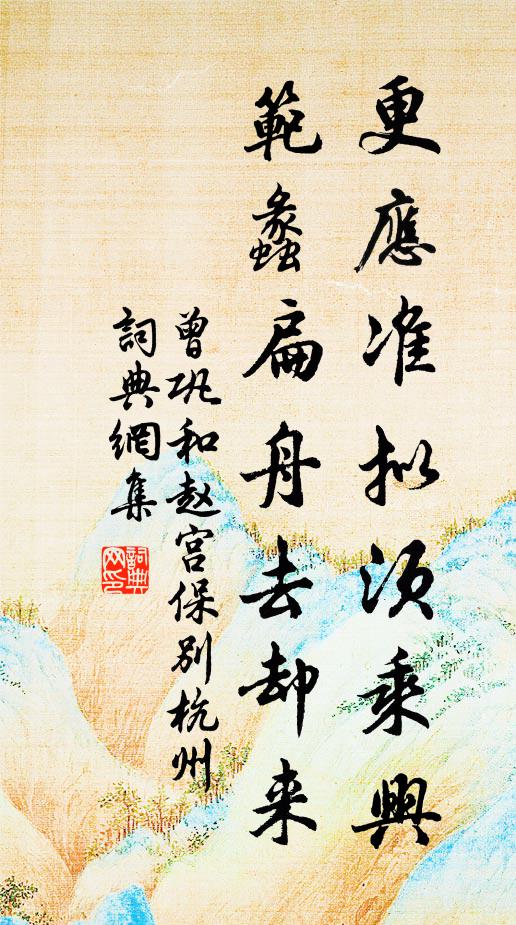 更應准拟須乘興
範蠡扁舟去却来
曾巩和赵宫保别杭州
詞典網集
詞典網印